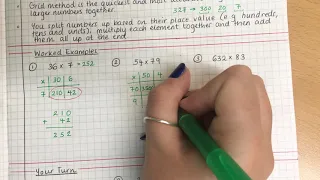 Grid method is the quickest and most
large numbers together.
327 → 300 20 7
You split numbers up based on their place value (e.g. hundreds,
tens and units), multiply each element together and then add
them all up at the end.
Worked Examples
① 36 × 7 = 252
② 54 × 79
③ 632 × 83
x 30 6
7 210 42
x 50 4
70
9
210
+ 42
252
Your Turn